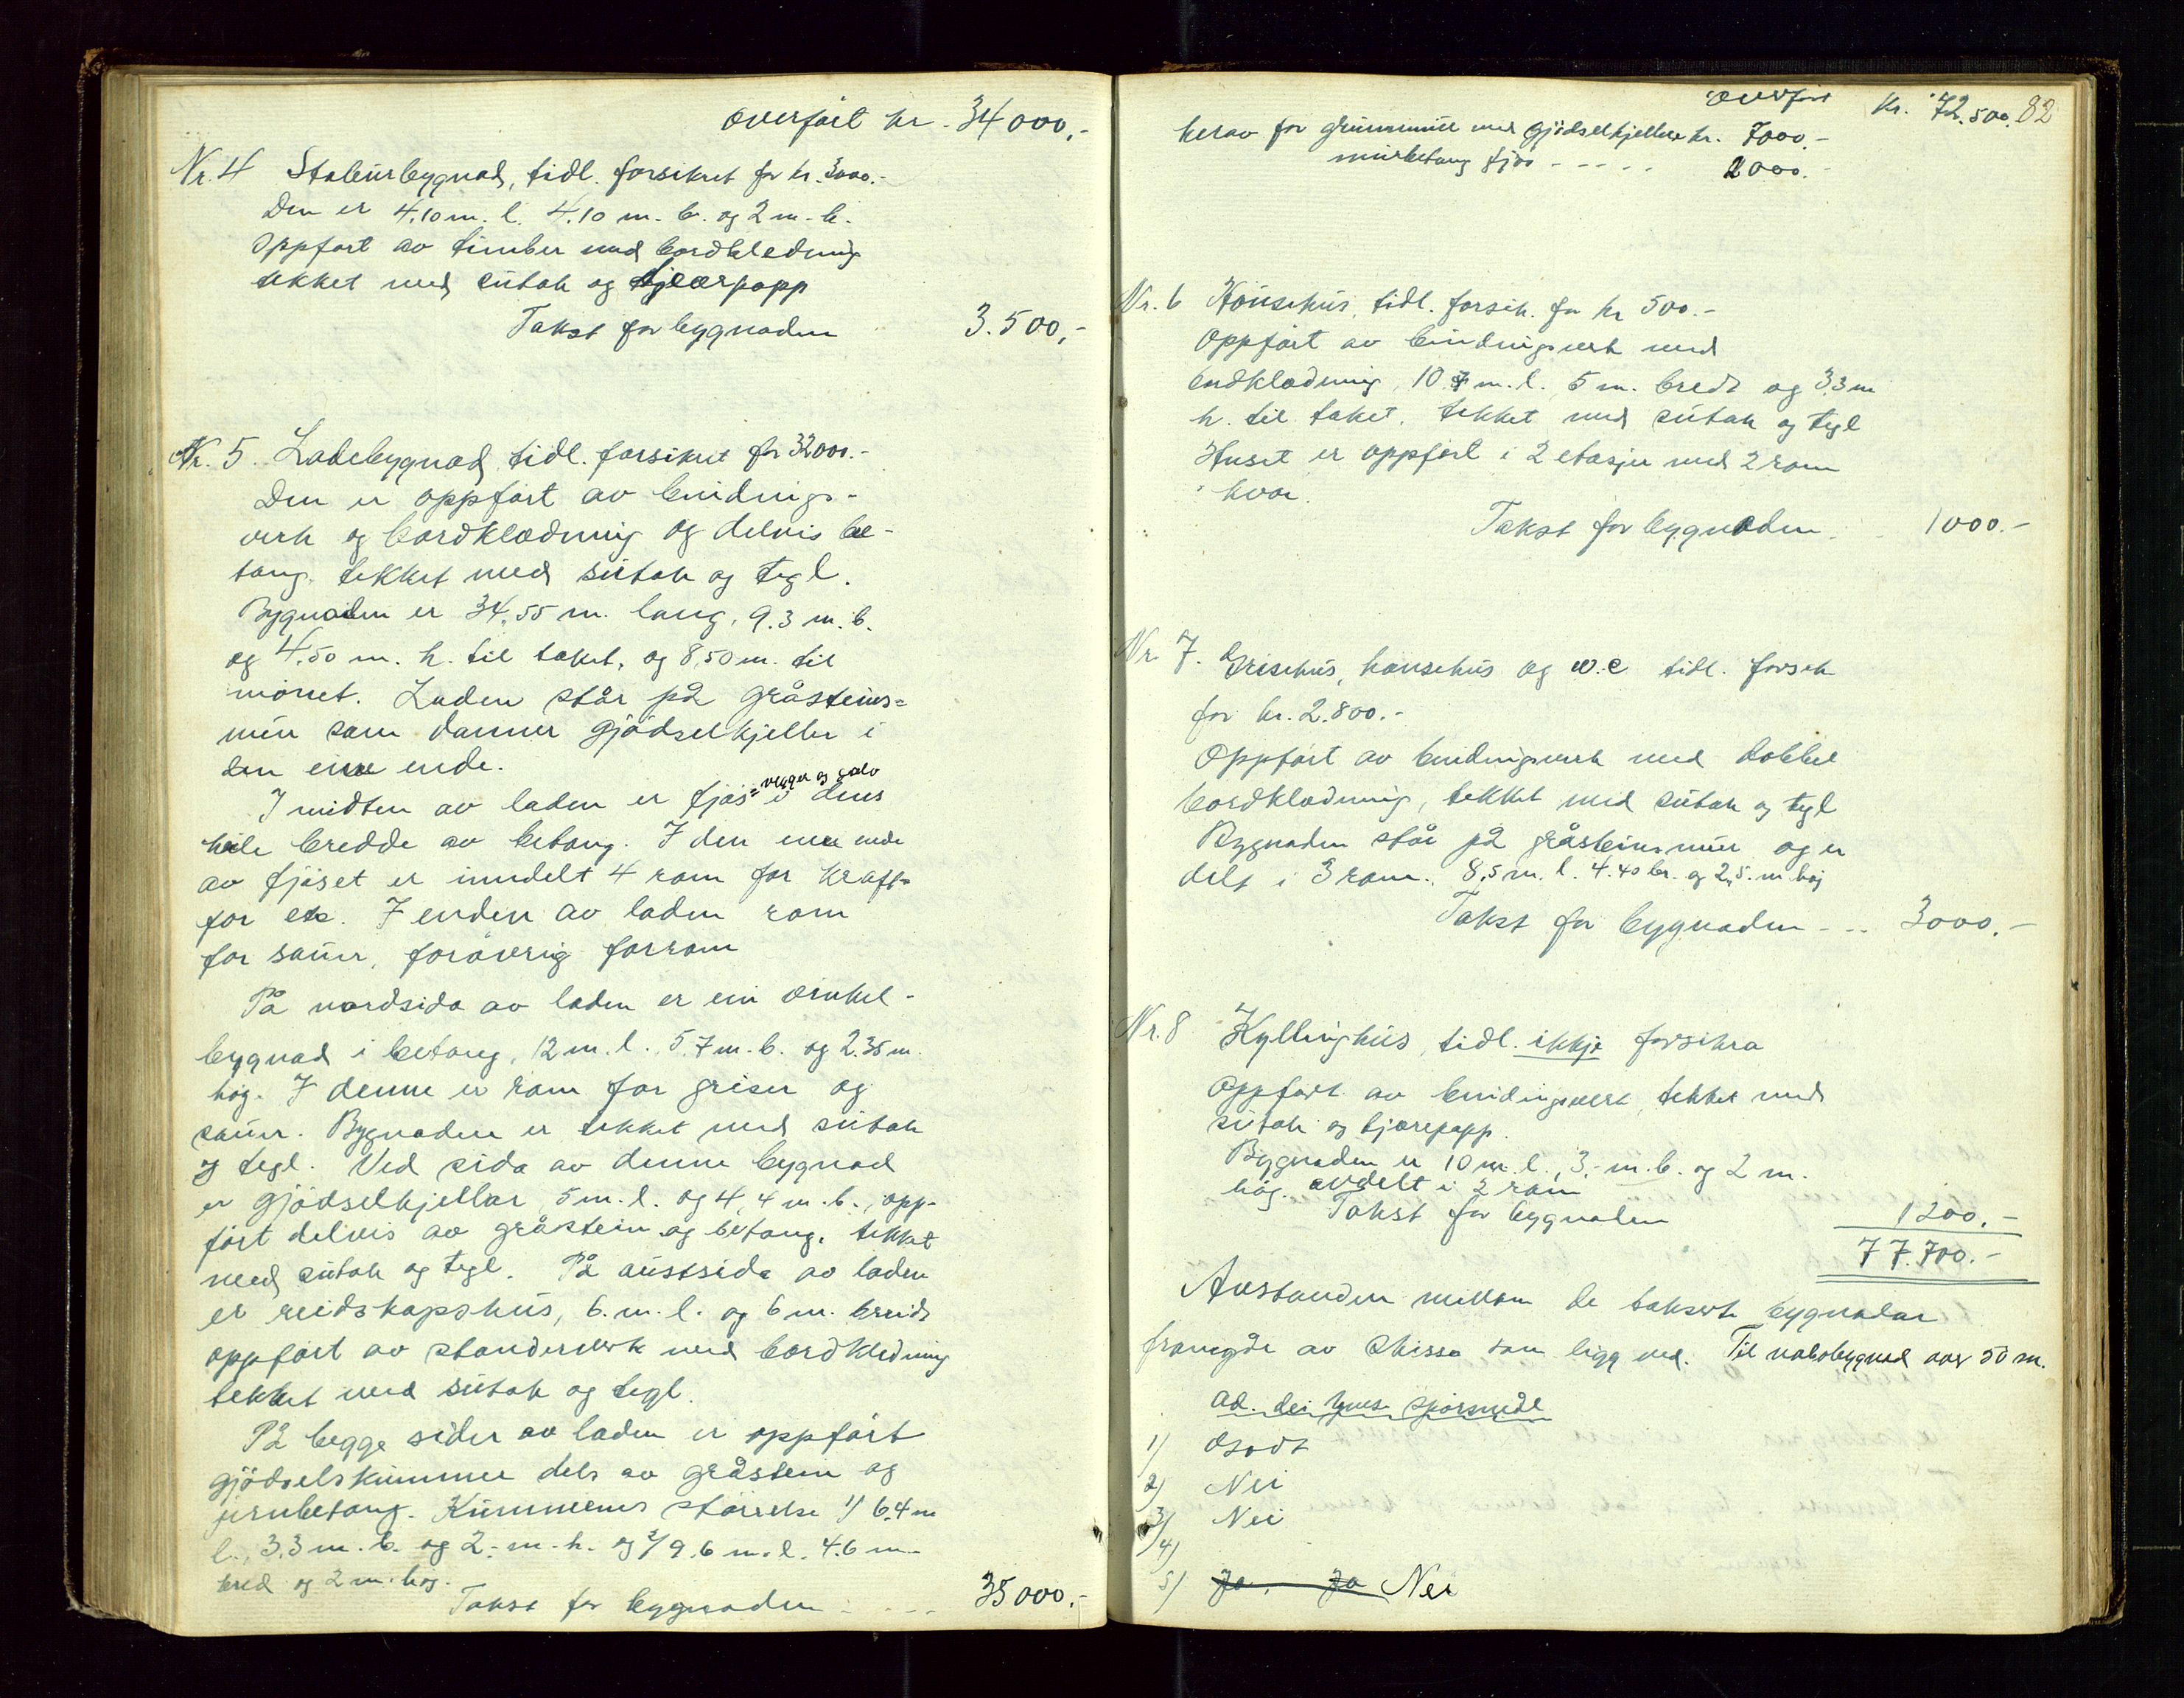 overført kr. 34000,-
Nr. 4 Stabursbygnad, tidl. forsikret for kr. 3000.-
Den er 4,10 m. l. 4,10 m. b. og 2 m. h.
Oppført av timber med bordkledning
tekket med sutak og tjærpapp
Takst for bygnaden 3.500,-
Nr. 5. Ladebygnad tidl. forsikret for 32000.-
Den er oppført av bindings-
verk og bordklædning og delvis be-
tong. tekket med sutak og tegl.
Bygnaden er 34,55 m. lang, 9.3 m. b.
og 4,50 m. h. til taket, og 8,50 m. til
mønet. Laden står på gråsteins-
mur som danner gjødselkjeller i
den ene ende.
vegger og golv
I midten av laden er fjøs i dens
hele bredde av betong. I den ene ende
av fjøset er inndelt 4 rom for kraft-
for etc. I enden av laden rom
for sauer, forøvrig forrom
På nordsida av laden er ein vinkel-
bygnad i betong, 12 m. l., 5.7 m. b. og 2.35 m.
høg. I denne er rom for griser og
sauer. Bygnaden er tekket med sutak
og tegl. Ved sida av denne bygnad
er gjødselkjellar 5 m. l. og 4,4 m. b., opp-
ført delvis av gråstein og betong, tekket
med sutak og tegl. På austsida av laden
er reidskapshus, 6. m. l. og 6 m. breidt
oppført av standerverk med bordkledning
tekket med sutak og tegl.
På begge sider av laden er oppført
gjødselskummer dels av gråstein og
jernbetong. Kummenes størrelse 1/ 6.4 m
l., 3.3 m. b. og 2.- m. h. og 2/ 9.6 m. l. 4.6 m.
bred og 2 m. høg.
Takst for bygnaden - - - - 35000.-
overført kr. 72.500. 82
herav for grunnmur med gjødselkjeller kr. 7000.-
murbetong fjøs - - - - - 2000.-
Nr. 6 Hønsehus, tidl. forsik. for kr 500.-
Oppført av bindingsverk med
bordklædning, 10.7 m. l. 5 m. bredt og 3,3 m
h. til taket. tekket med sutak og tegl
Huset er oppført i 2 etasjer med 2 rom
i hver.
Takst for bygnaden. 1000.-
Nr. 7. Grisehus, hønsehus og w.c tidl. forsik
for kr. 2.800.-
Oppført av bindingsverk med dobbel
bordklædning, tekket med sutak og tegl
Bygnaden står på gråsteinsmur og er
delt i 3 rom. 8,5 m. l. 4.40 br. og 2,5. m høg
Takst for bygnaden - - - 3000.-
Nr. 8 Kyllinghus, tidl. ikkje forsikra
Oppført av bindingsverk tekket med
sutak og tjærepapp.
Bygnaden er 10 m. l., 3.- m. b. og 2 m.
høg. avdelt i 2 rom
Takst for bygnaden 1200.-
77.700.-
Avstanden mellom de takserte bygnadar
framgår av skisse som ligg ved. Til nabobygnad over 50 m.
ad. dei spørsmål
1) Godt
2) Nei
3) Nei
4)
5) Ja. Ja Nei